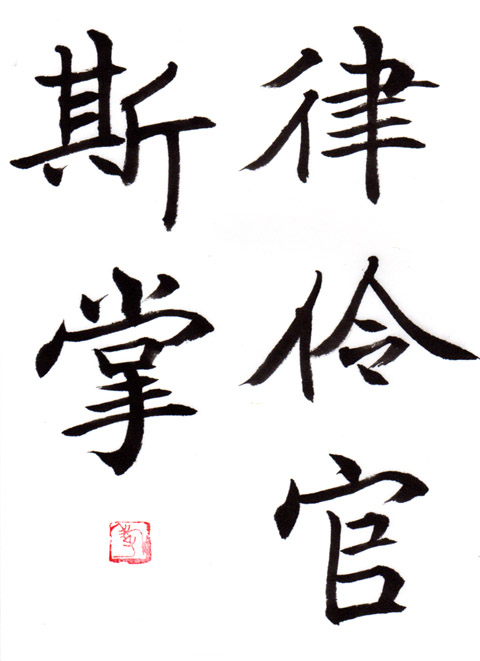 律伶官
斯掌